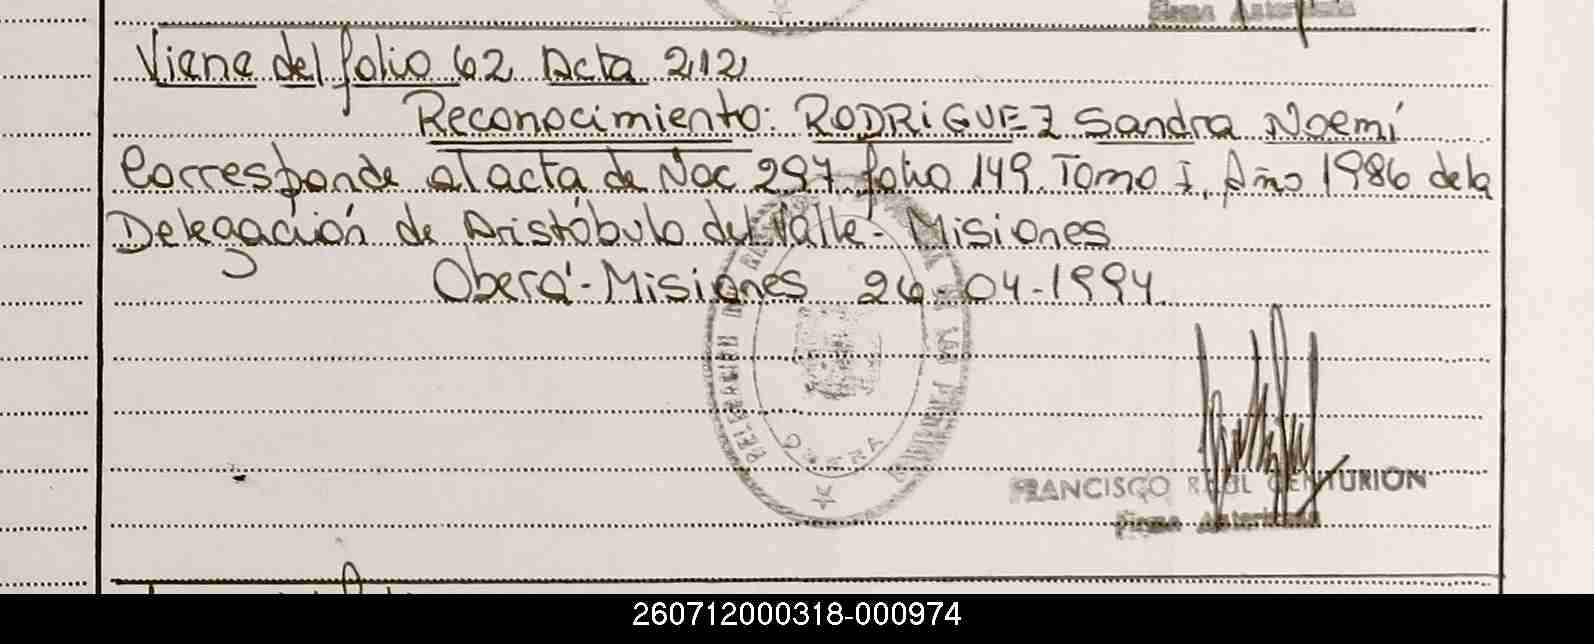 Firma Autorizada
Viene del folio 62 Acta 212
Reconocimiento: RODRIGUEZ Sandra Noemí
Corresponde al acta de Nac 297 folio 149 Tomo I, Año 1986 de la
Delegación de Aristóbulo del Valle - Misiones
Oberá - Misiones 26-04-1994
DELEGACION
OBERA
FRANCISCO RAUL CENTURION
Firma Autorizada
260712000318-000974